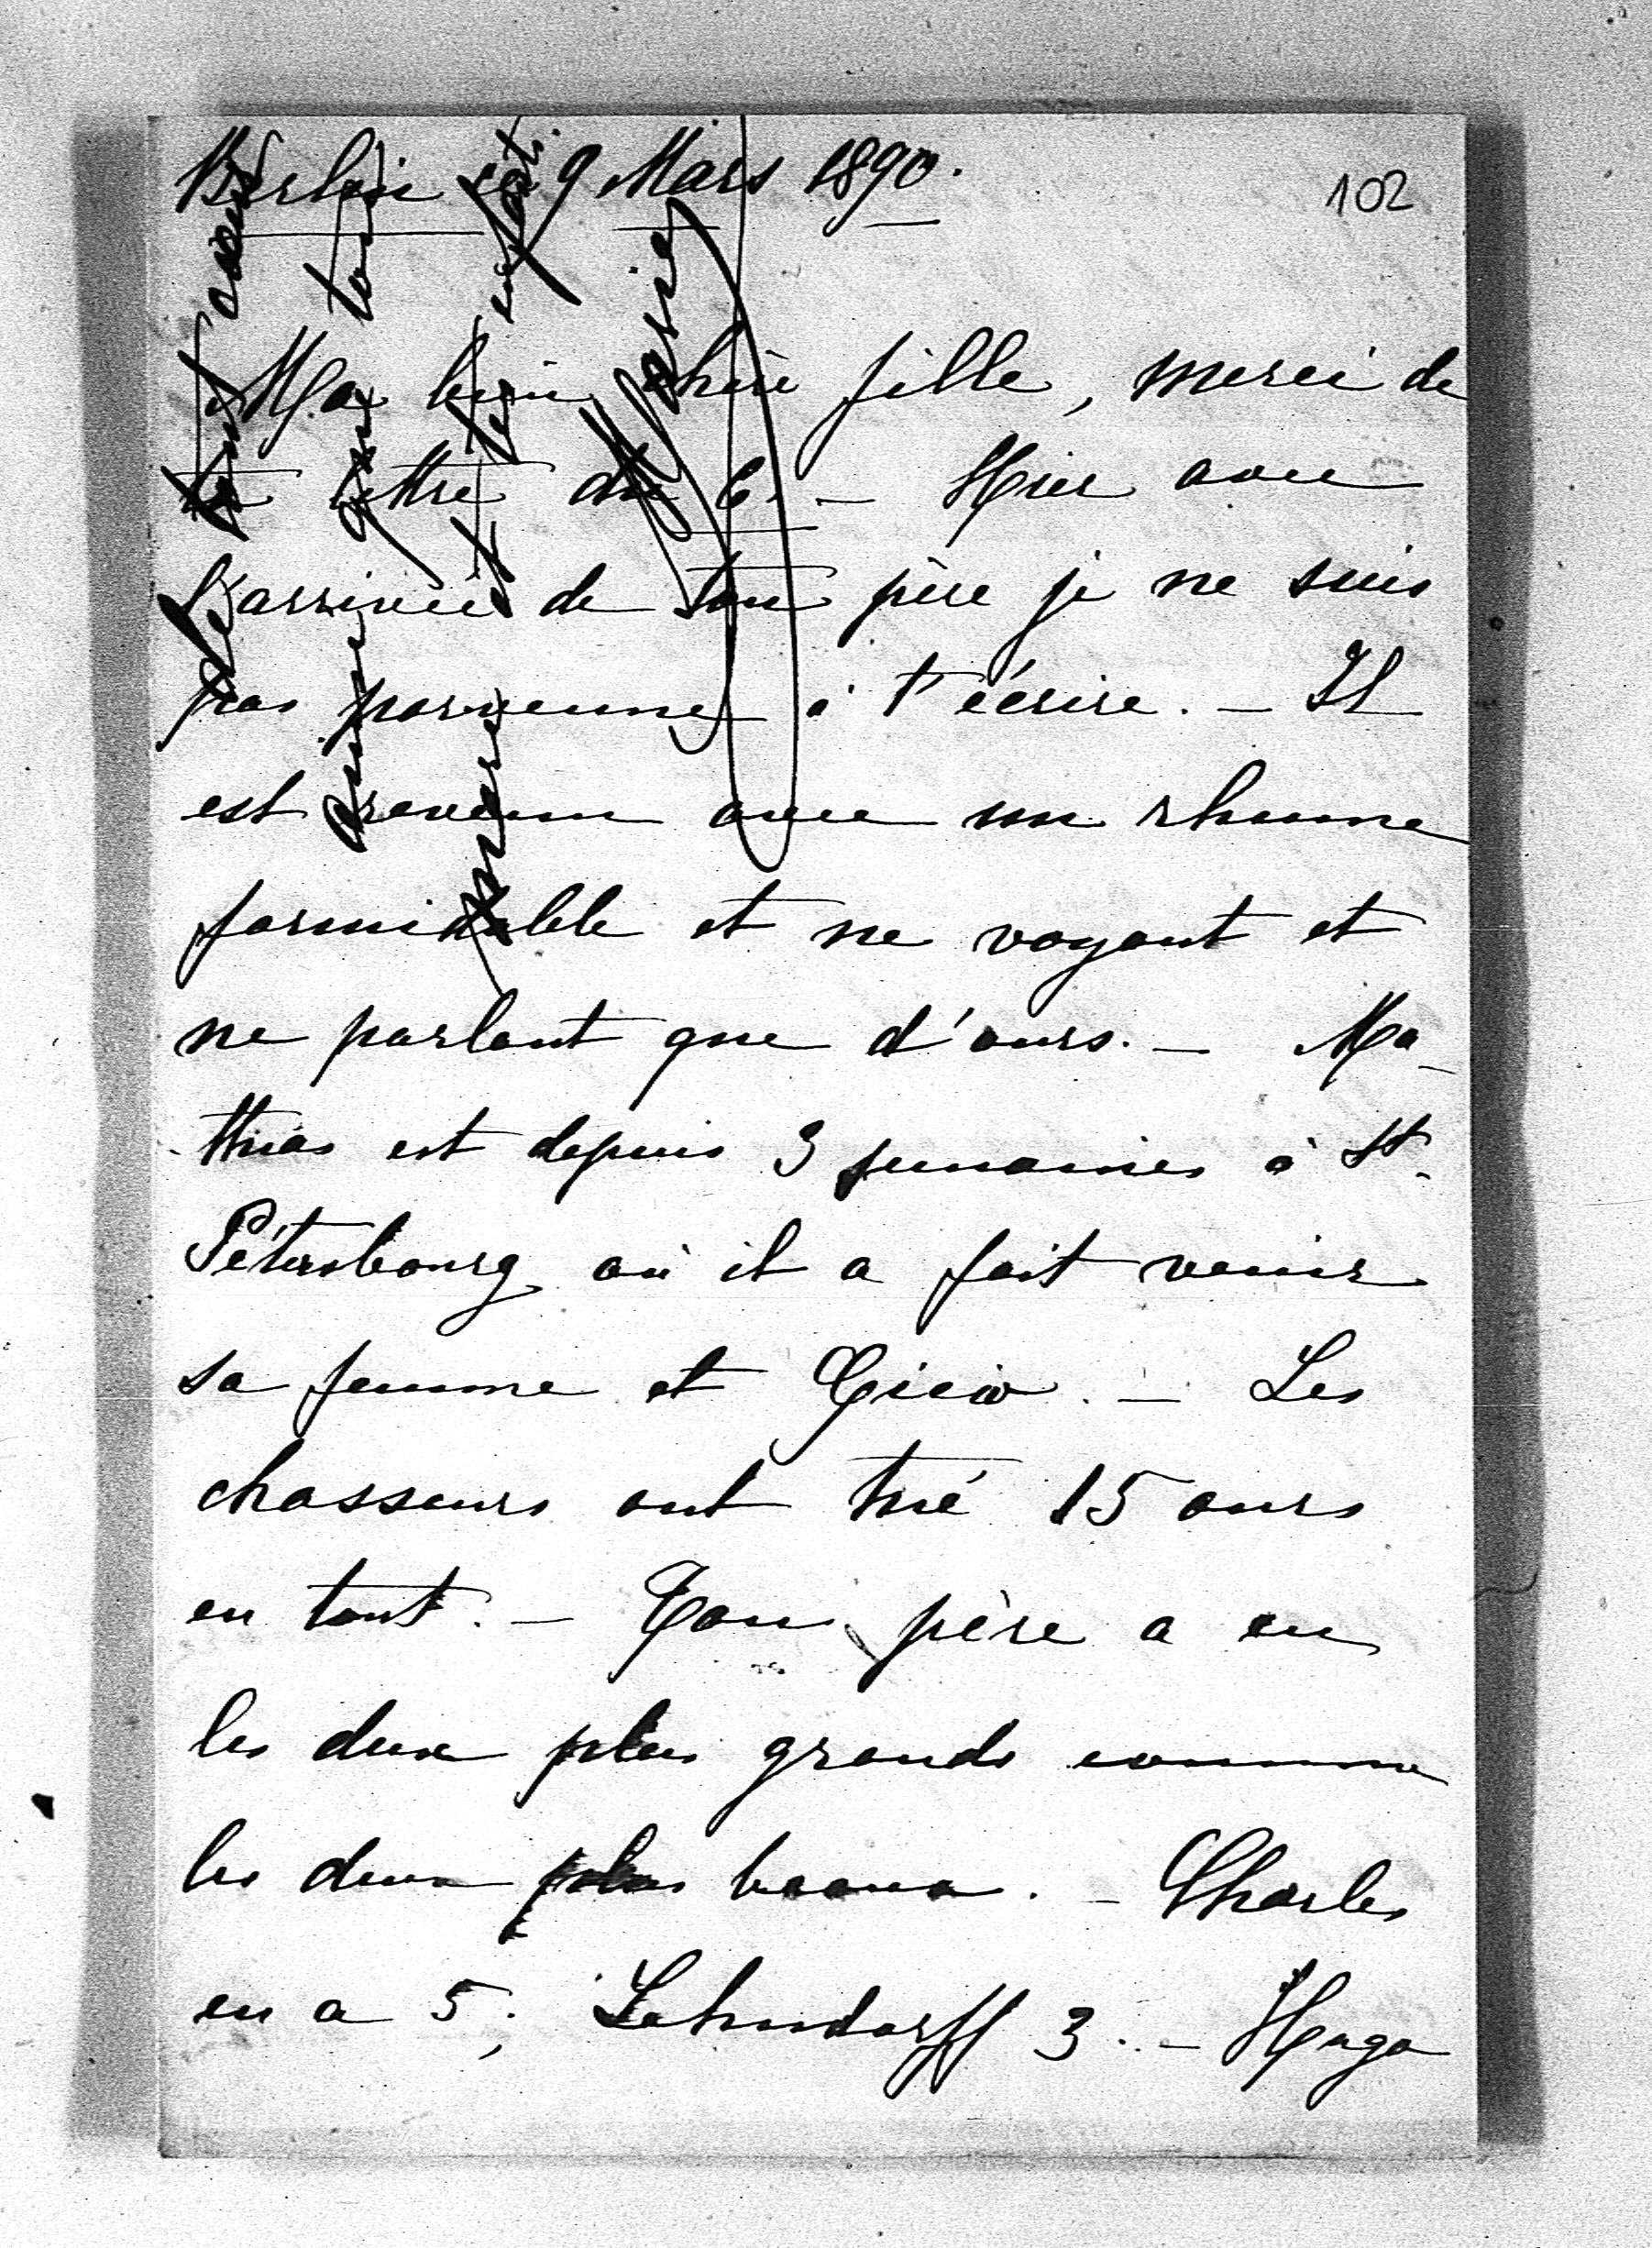 Berlin ce 9 Mars 1890.
102
Ma bien chère fille, merci de
ta lettre du 6. – Hier avec
l'arrivée de ton père je ne suis
pas parvenue à t'écrire. – Il
est revenu avec un rhume
formidable et ne voyant et
ne parlant que d'ours. – Ma-
thias est depuis 3 semaines à St.
Pétersbourg où il a fait venir
sa femme et . – Les
chasseurs ont tué 15 ours
en tout. – Ton père a eu
les deux plus grands comme
les deux plus beaux. – Charles
en a 5, Lehndorff 3. – Hugo
Je
et tes enfants.
mère
Marie